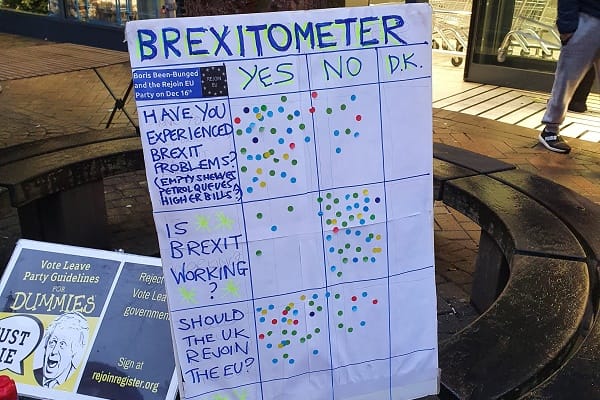 BREXITOMETER
Boris Been-Bunged
and the Rejoin EU
Party on Dec 16th
REJOIN
EU
YES
NO
D.K.
HAVE YOU
EXPERIENCED
BREXIT
PROBLEMS?
(EMPTY SHELVES
PETROL QUEUES
HIGHER BILLS?)
IS
BREXIT
WORKING
?
SHOULD
THE UK
REJOIN
THE EU?
Vote Leave
Party Guidelines
for
DUMMIES
UST
IE
Rejec
Vote Leav
governmen
Sign at
rejoinregister.org